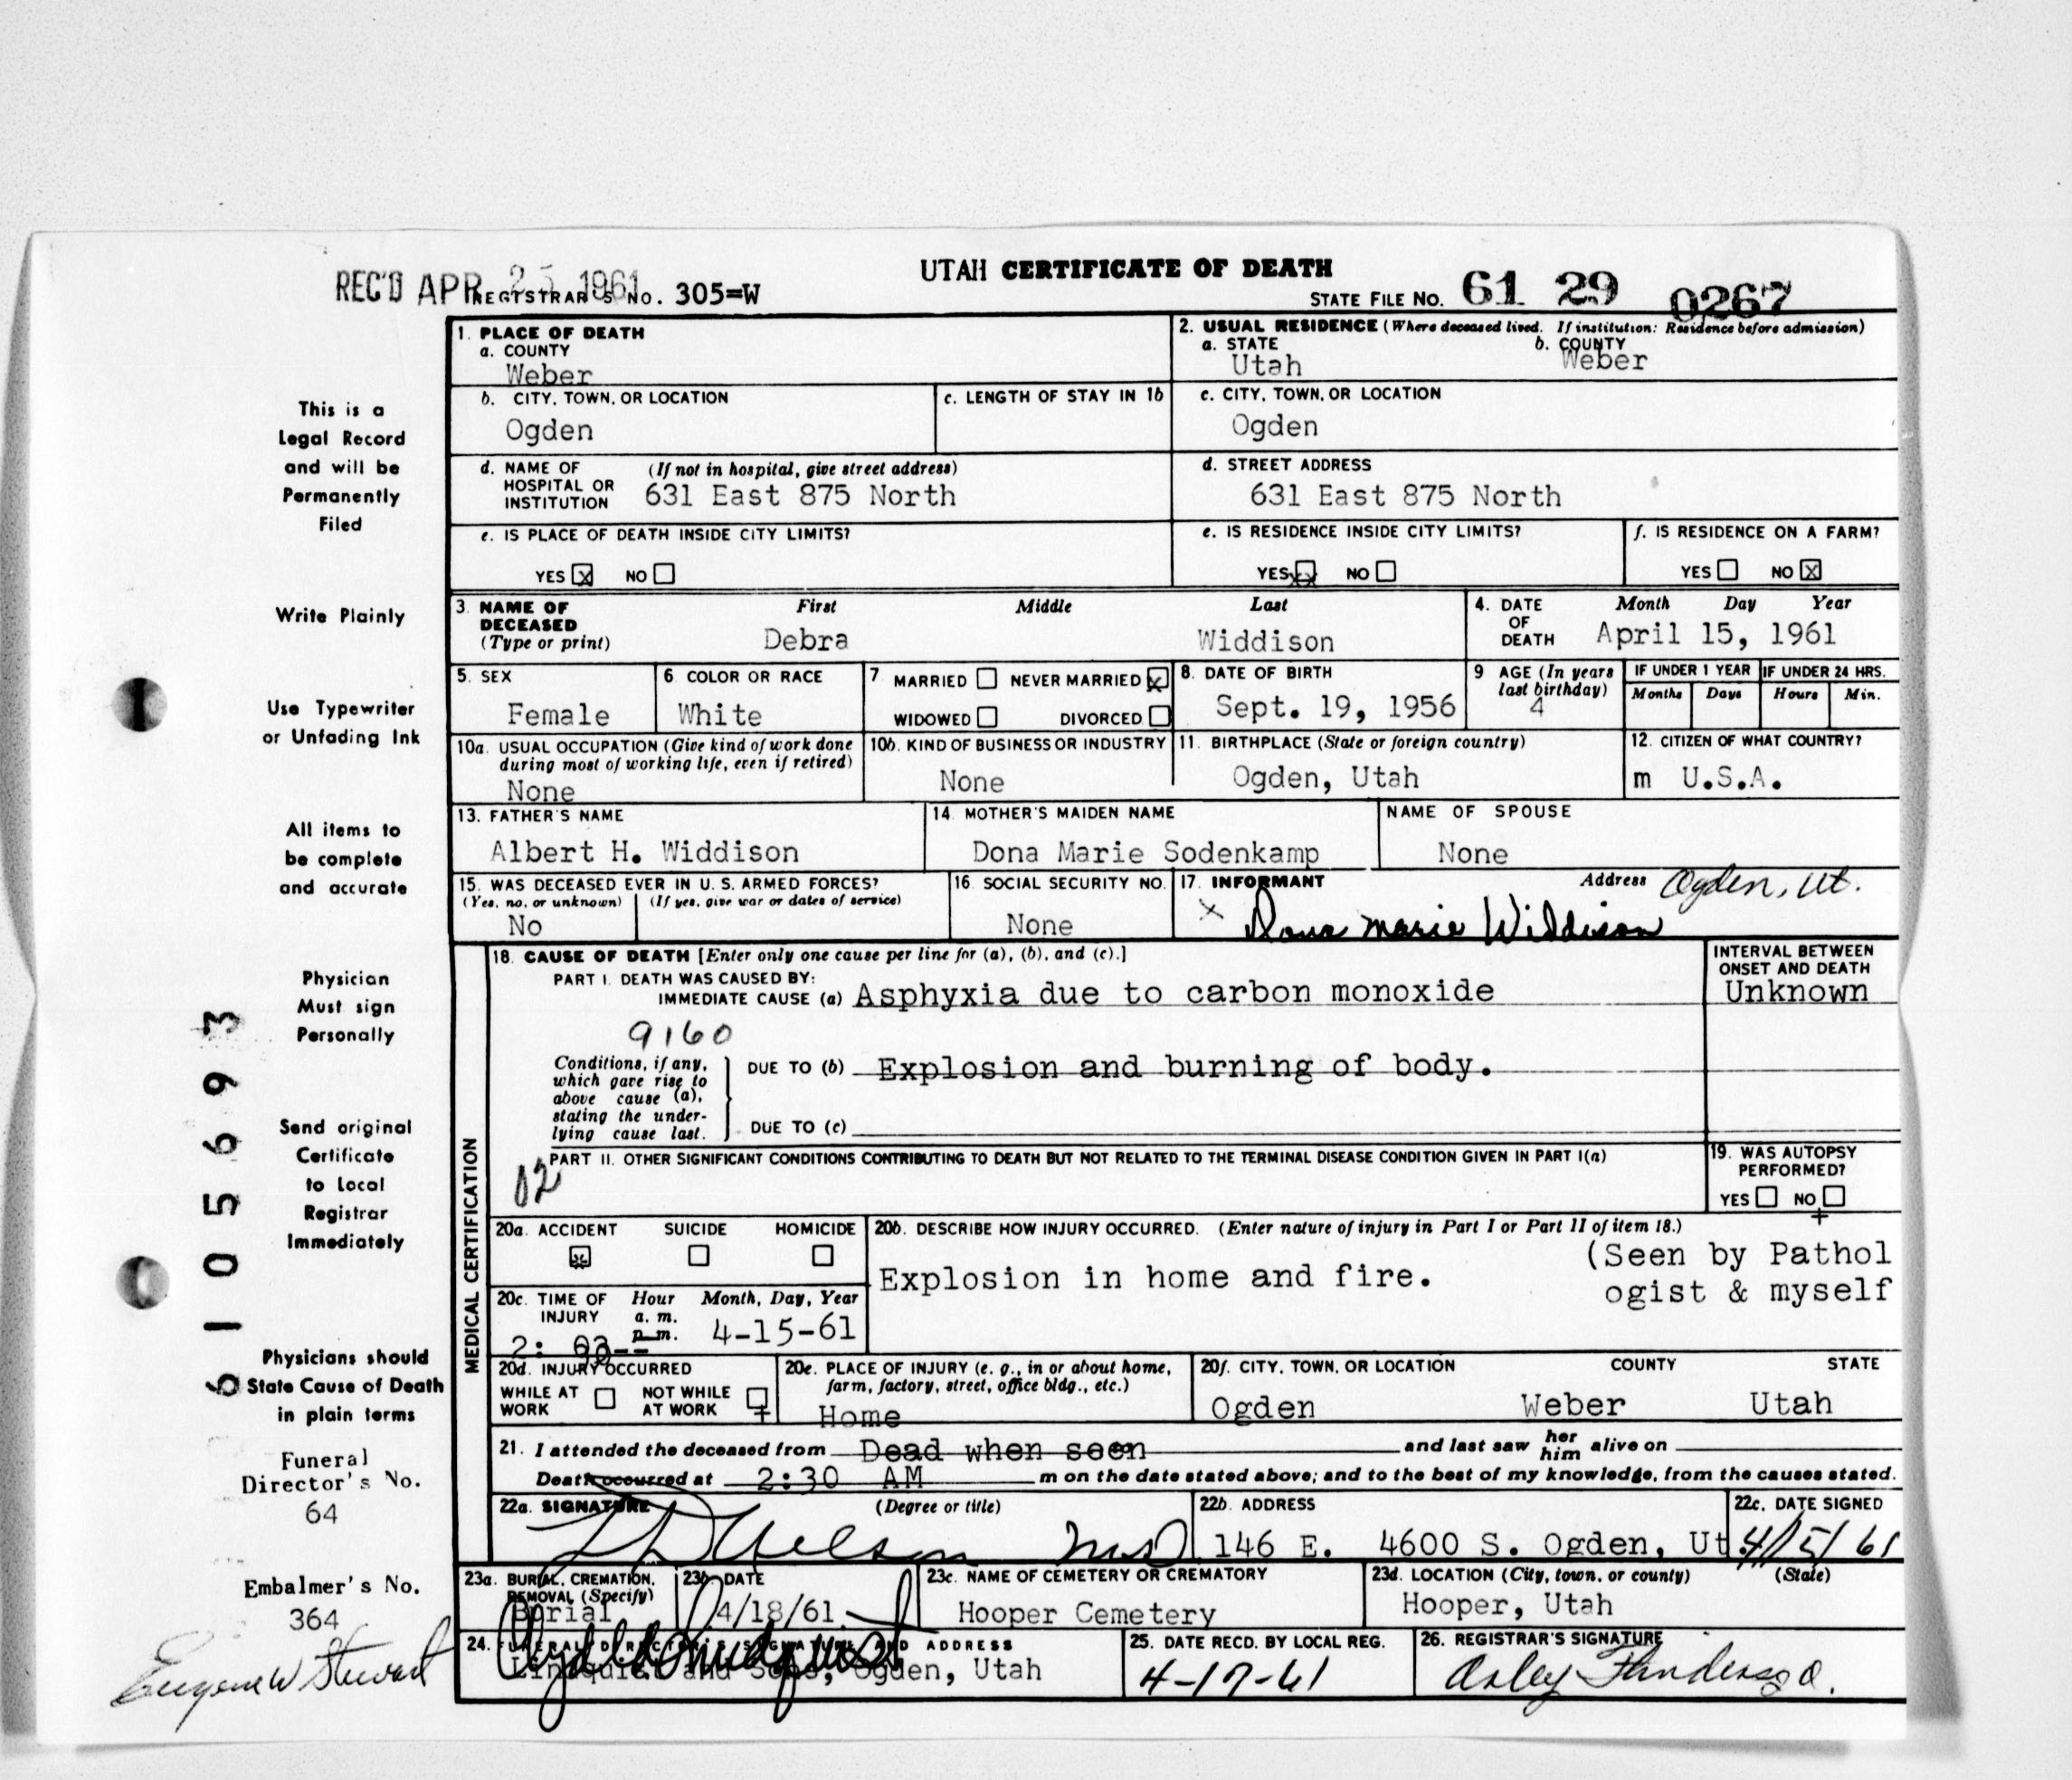 UTAH CERTIFICATE OF DEATH
REC'D APR 25 1961 REGISTRAR'S NO. 305=W
STATE FILE NO. 61 29 0267
This is a
Legal Record
and will be
Permanently
Filed
Write Plainly
Use Typewriter
or Unfading Ink
All items to
be complete
and accurate
Physician
Must sign
Personally
Send original
Certificate
to Local
Registrar
Immediately
Physicians should
State Cause of Death
in plain terms
Funeral
Director's No.
64
Embalmer's No.
364
Eugene W Stewart
6105693
1. PLACE OF DEATH
a. COUNTY
Weber
2. USUAL RESIDENCE (Where deceased lived. If institution: Residence before admission)
a. STATE b. COUNTY
Utah Weber
b. CITY, TOWN, OR LOCATION
Ogden
c. LENGTH OF STAY IN 1b
c. CITY, TOWN, OR LOCATION
Ogden
d. NAME OF (If not in hospital, give street address)
HOSPITAL OR
INSTITUTION 631 East 875 North
d. STREET ADDRESS
631 East 875 North
e. IS PLACE OF DEATH INSIDE CITY LIMITS?
YES X NO
e. IS RESIDENCE INSIDE CITY LIMITS?
YES XX NO
f. IS RESIDENCE ON A FARM?
YES NO X
3. NAME OF First Middle Last
DECEASED
(Type or print) Debra Widdison
4. DATE Month Day Year
OF
DEATH April 15, 1961
5. SEX
Female
6. COLOR OR RACE
White
7 MARRIED NEVER MARRIED X
WIDOWED DIVORCED
8. DATE OF BIRTH
Sept. 19, 1956
9 AGE (In years
last birthday)
4
IF UNDER 1 YEAR IF UNDER 24 HRS.
Months Days Hours Min.
10a. USUAL OCCUPATION (Give kind of work done
during most of working life, even if retired)
None
10b. KIND OF BUSINESS OR INDUSTRY
None
11. BIRTHPLACE (State or foreign country)
Ogden, Utah
12. CITIZEN OF WHAT COUNTRY?
m U.S.A.
13. FATHER'S NAME
Albert H. Widdison
14. MOTHER'S MAIDEN NAME
Dona Marie Sodenkamp
NAME OF SPOUSE
None
15. WAS DECEASED EVER IN U. S. ARMED FORCES?
(Yes, no, or unknown) (If yes, give war or dates of service)
No
16. SOCIAL SECURITY NO.
None
17. INFORMANT Address Ogden, Ut.
X Dona Marie Widdison
MEDICAL CERTIFICATION
18. CAUSE OF DEATH [Enter only one cause per line for (a), (b), and (c).]
PART I. DEATH WAS CAUSED BY:
IMMEDIATE CAUSE (a) Asphyxia due to carbon monoxide
INTERVAL BETWEEN
ONSET AND DEATH
Unknown
9160
Conditions, if any,
which gave rise to
above cause (a),
stating the under-
lying cause last.
DUE TO (b) Explosion and burning of body.
DUE TO (c)
PART II. OTHER SIGNIFICANT CONDITIONS CONTRIBUTING TO DEATH BUT NOT RELATED TO THE TERMINAL DISEASE CONDITION GIVEN IN PART I(a)
02
19. WAS AUTOPSY
PERFORMED?
YES NO
+
20a. ACCIDENT SUICIDE HOMICIDE
20b. DESCRIBE HOW INJURY OCCURRED. (Enter nature of injury in Part I or Part II of item 18.)
Explosion in home and fire.
(Seen by Pathol
ogist & myself
20c. TIME OF Hour Month, Day, Year
INJURY a. m.
p. m. 4-15-61
20d. INJURY OCCURRED
WHILE AT
WORK
NOT WHILE
AT WORK
+
20e. PLACE OF INJURY (e. g., in or about home,
farm, factory, street, office bldg., etc.)
Home
20f. CITY, TOWN, OR LOCATION COUNTY STATE
Ogden Weber Utah
21. I attended the deceased from Dead when seen and last saw her him alive on
Death occurred at 2:30 AM m on the date stated above; and to the best of my knowledge, from the causes stated.
22a. SIGNATURE (Degree or title)
Nelson MD
22b. ADDRESS
146 E. 4600 S. Ogden, Ut
22c. DATE SIGNED
4/15/61
23a. BURIAL, CREMATION,
REMOVAL (Specify)
Burial
23b. DATE
4/18/61
23c. NAME OF CEMETERY OR CREMATORY
Hooper Cemetery
23d. LOCATION (City, town, or county) (State)
Hooper, Utah
24. FUNERAL DIRECTOR'S SIGNATURE AND ADDRESS
Lindquist and Sons, Ogden, Utah
25. DATE RECD. BY LOCAL REG.
4-17-61
26. REGISTRAR'S SIGNATURE